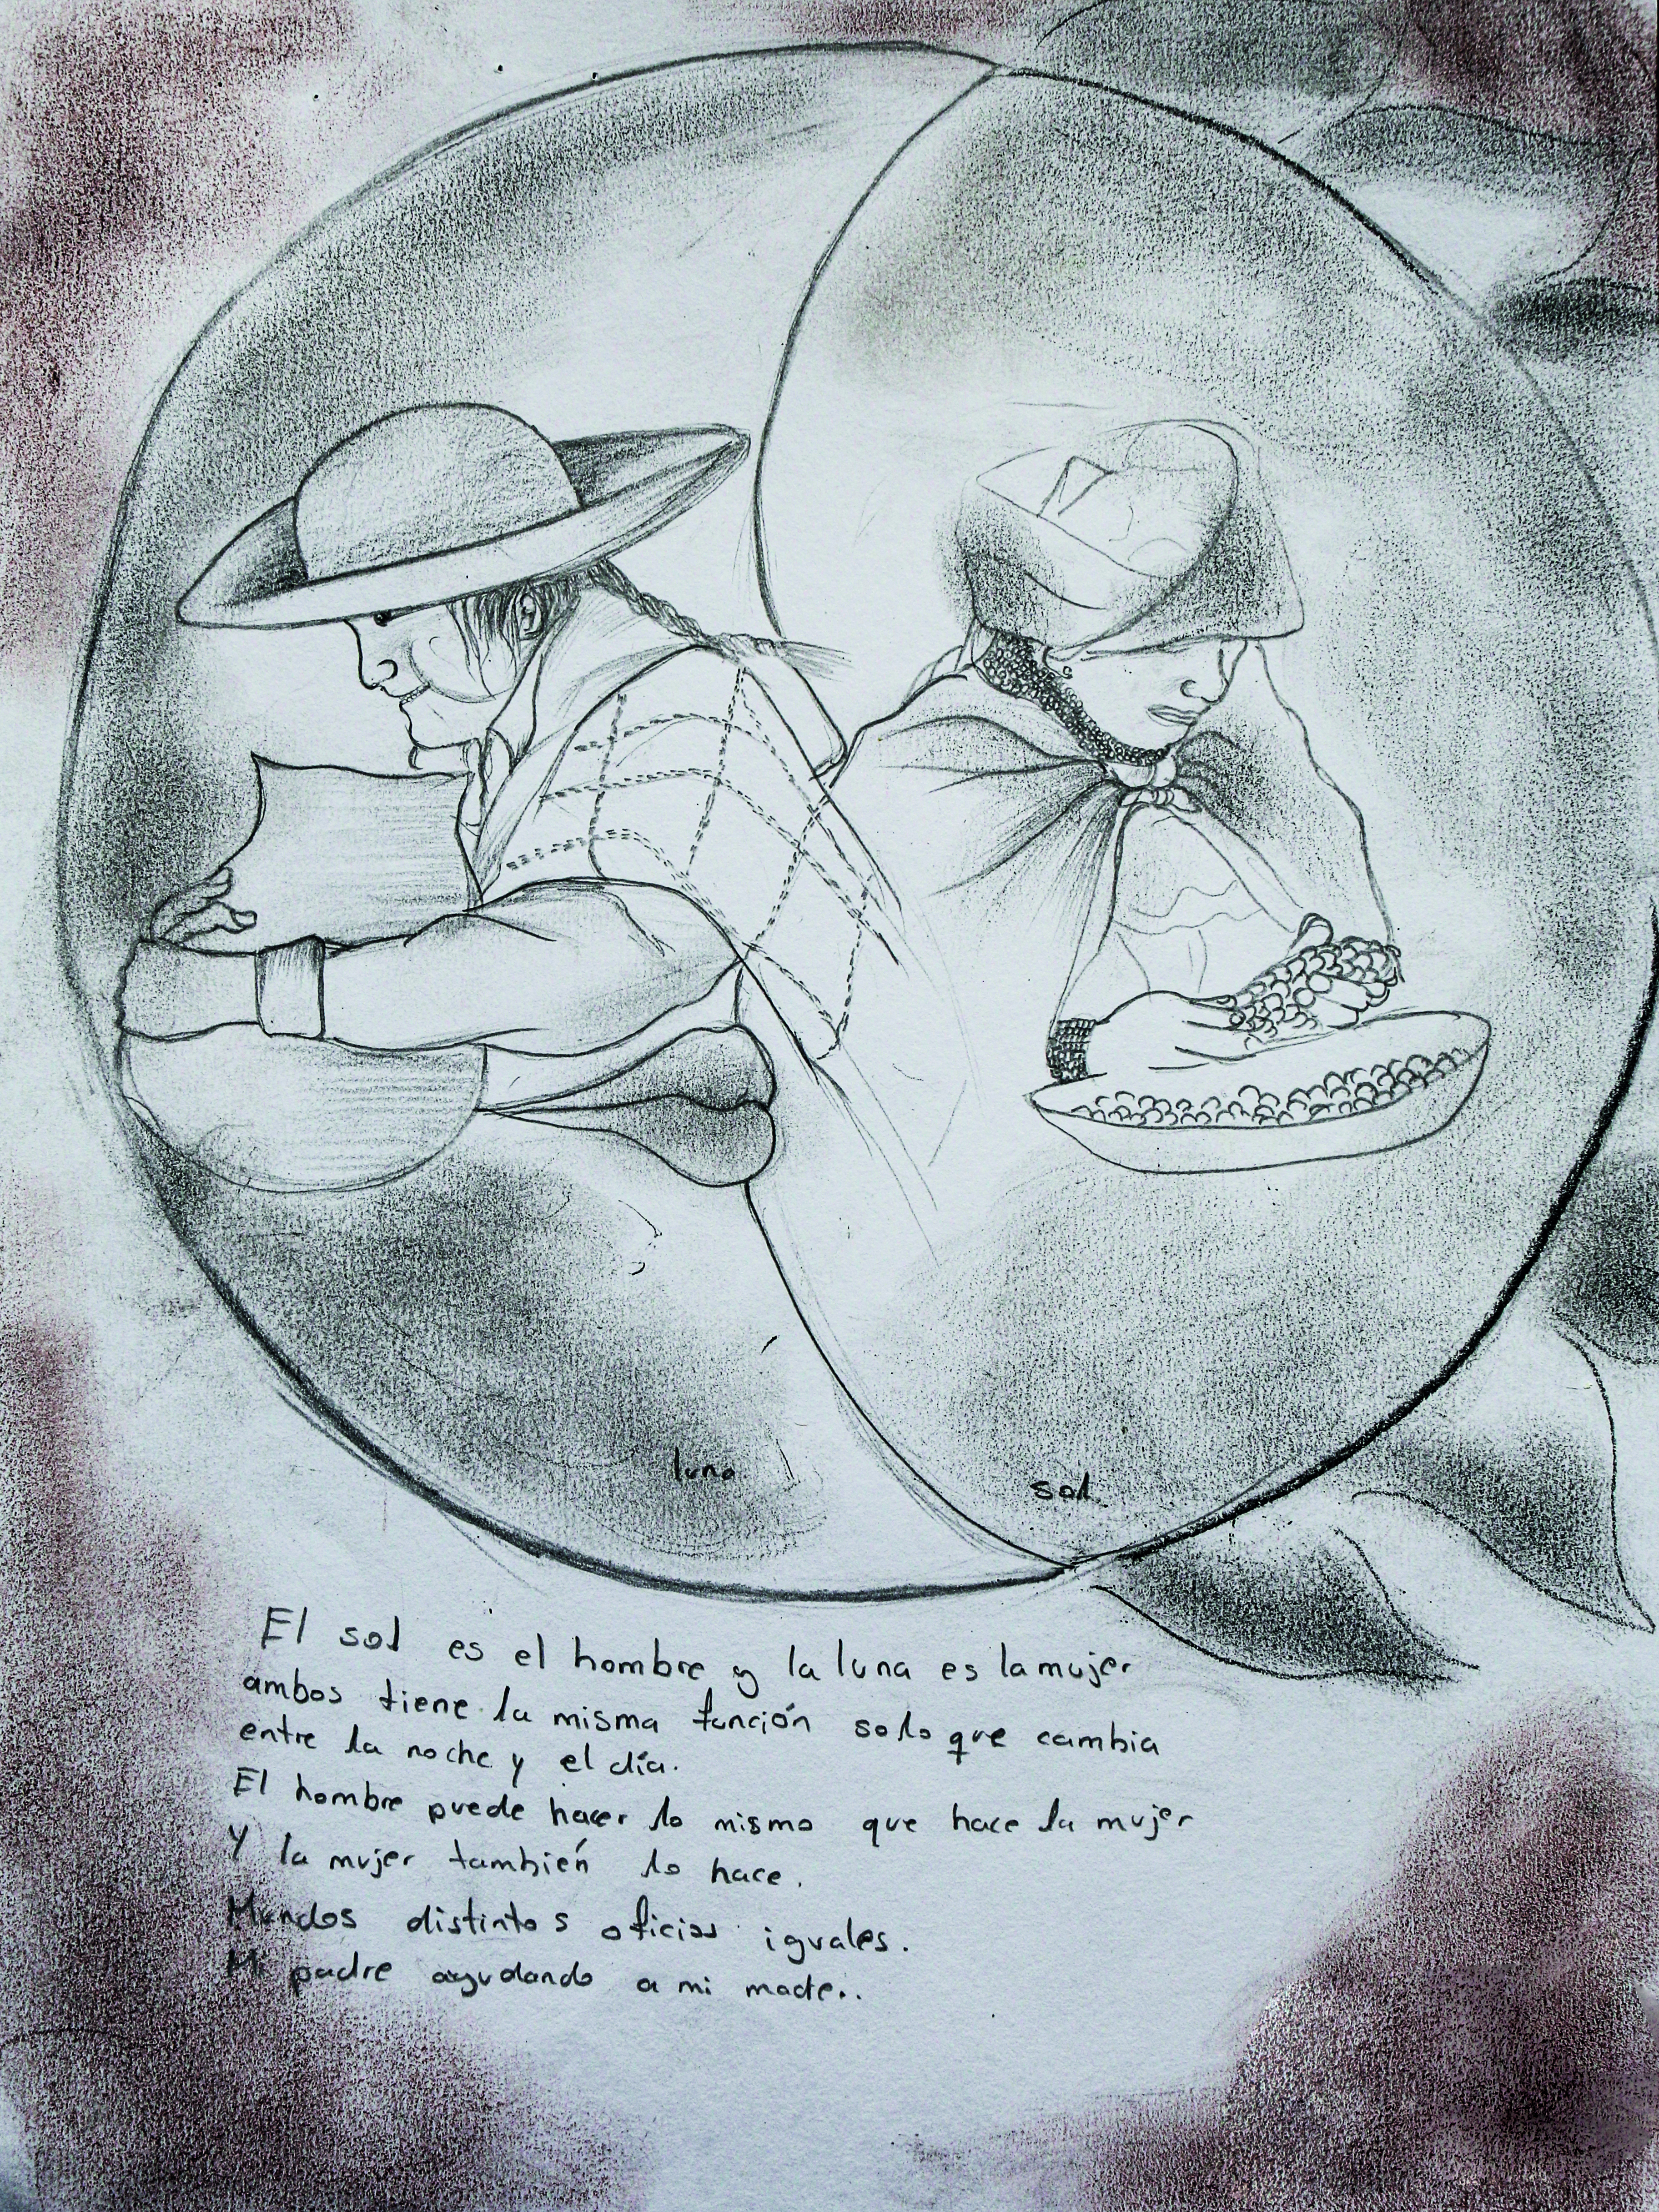 luna
sol
El sol es el hombre y la luna es la mujer
ambos tiene la misma función solo que cambia
entre la noche y el día.
El hombre puede hacer lo mismo que hace la mujer
y la mujer también lo hace.
Mundos distintos oficios iguales.
Mi padre ayudando a mi madre..